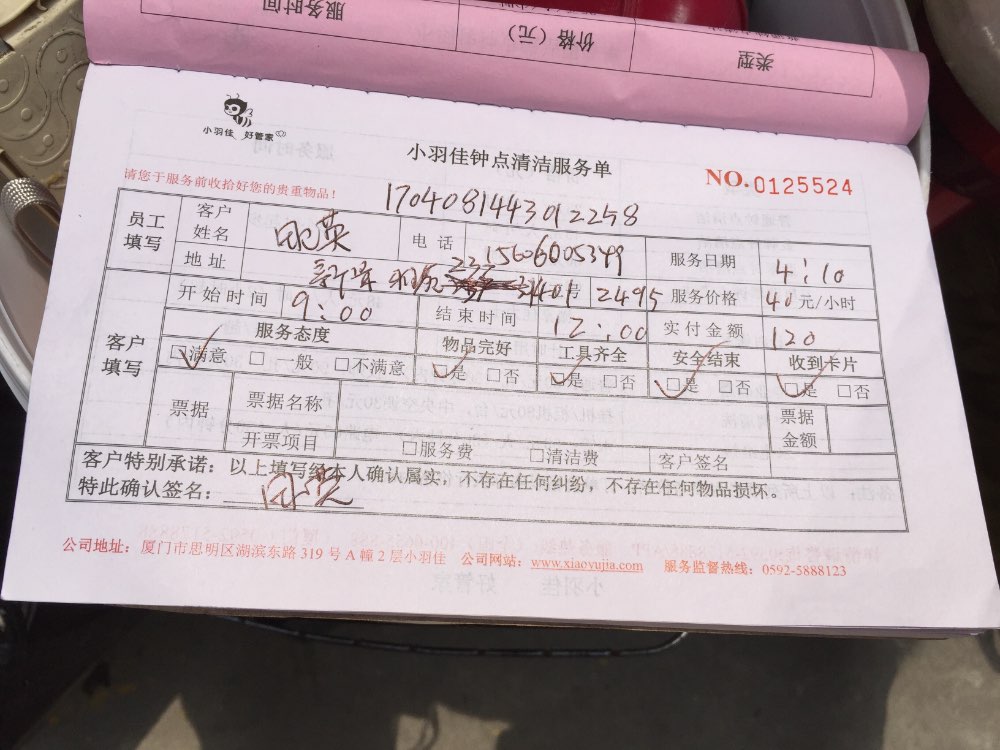 服务时间
价格（元）
类型
小羽佳 好管家
小羽佳钟点清洁服务单
NO.0125524
请您于服务前收拾好您的贵重物品！
1704081443012258
员工填写 客户姓名 英 电话 15606005399 服务日期 4:10
地址 2495 服务价格 40元/小时
客户填写 开始时间 9:00 结束时间 12:00 实付金额 120
服务态度 物品完好 工具齐全 安全结束 收到卡片
☑满意 □一般 □不满意 ☑是 □否 ☑是 □否 ☑是 □否 ☑是 □否
票据 票据名称 票据金额
开票项目 □服务费 □清洁费 客户签名
客户特别承诺：以上填写经本人确认属实，不存在任何纠纷，不存在任何物品损坏。
特此确认签名：
公司地址：厦门市思明区湖滨东路 319 号 A 幢 2 层小羽佳 公司网站：www.xiaoyujia.com 服务监督热线：0592-5888123